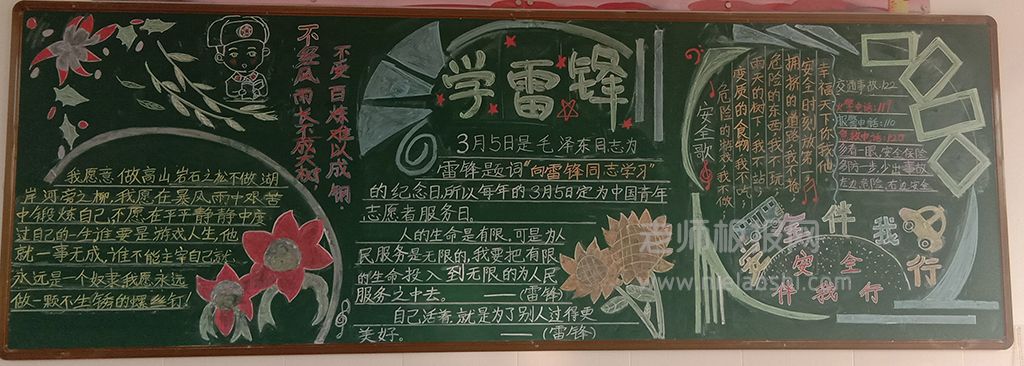 不经风雨长不成大树,
不受百炼难以成钢.
我愿意做高山岩石之松不做湖
岸河旁之柳.我愿在暴风雨中艰苦
中锻炼自己,不愿在平平静静中度
过自己的一生谁要是游戏人生,他
就一事无成,谁不能主宰自己就
永远是一个奴隶我愿永远
做一颗不生锈的螺丝钉!
学雷锋
3月5日是毛泽东同志为
雷锋题词"向雷锋同志学习"
的纪念日,所以每年的3月5定为中国青年
志愿者服务日.
人的生命是有限,可是为人
民服务是无限的,我要把有限
的生命投入到无限的为人民
服务之中去. ——(雷锋)
自己活着,就是为了别人过得更
美好. ——(雷锋)
安全歌
安全时刻放着,
拥挤的道路,我不抢,
危险的东西我不玩
雨天的树下,我不站,
变质的食物,我不吃,
危险的游戏,我不做,
交通事故:122
火警电话:119
报警电话:110
急救电话:120
安全伴我行
安全
伴我行
老师板报网